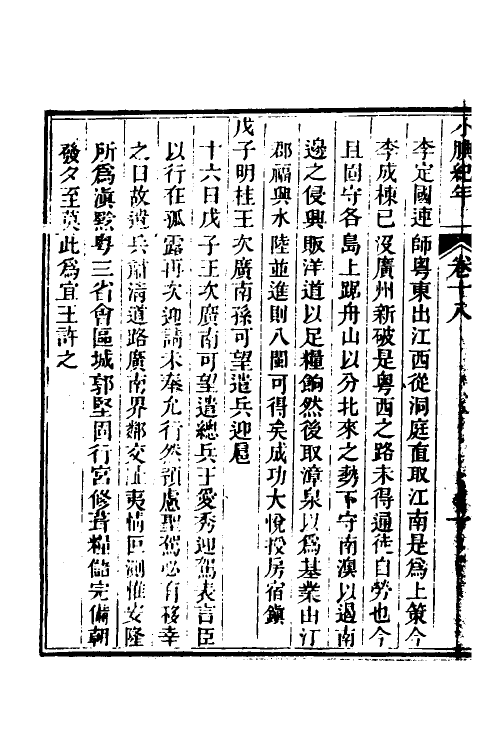 小腆紀年　卷十八
李定國連師粵東出江西從洞庭直取江南是爲上策今
李成棟已沒廣州新破是粵西之路未得通徒自勞也今
且固守各島上踞舟山以分北來之勢下守南澳以遏南
邊之侵興販洋道以足糧餉然後取漳泉以爲基業由汀
郡福興水陸並進則八閩可得矣成功大悅授房宿鎮
戊子明桂王次廣南孫可望遣兵迎扈
十六日戊子王次廣南可望遣總兵王愛秀迎駕表言臣
以行在孤露再次迎請未奉允行然預慮聖駕必有移幸
之日故遣兵肅清道路廣南界鄰交趾夷情叵測惟安隆
所爲滇黔粵三省會區城郭堅固行宮修葺糧儲完備朝
發夕至莫此爲宜王許之